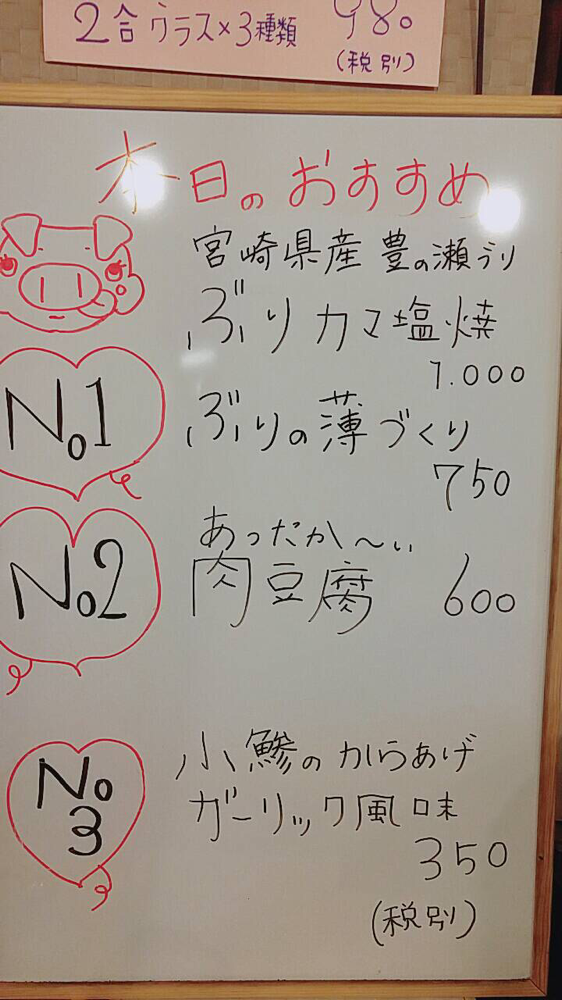 2合グラス×3種類 980
(税別)
本日のおすすめ
宮崎県産 豊の瀬ぶり
ぶりカマ塩焼
1.000
No1
ぶりの薄づくり
750
あったか〜い
No2
肉豆腐 600
No
3
小鯵のからあげ
ガーリック風味
350
(税別)